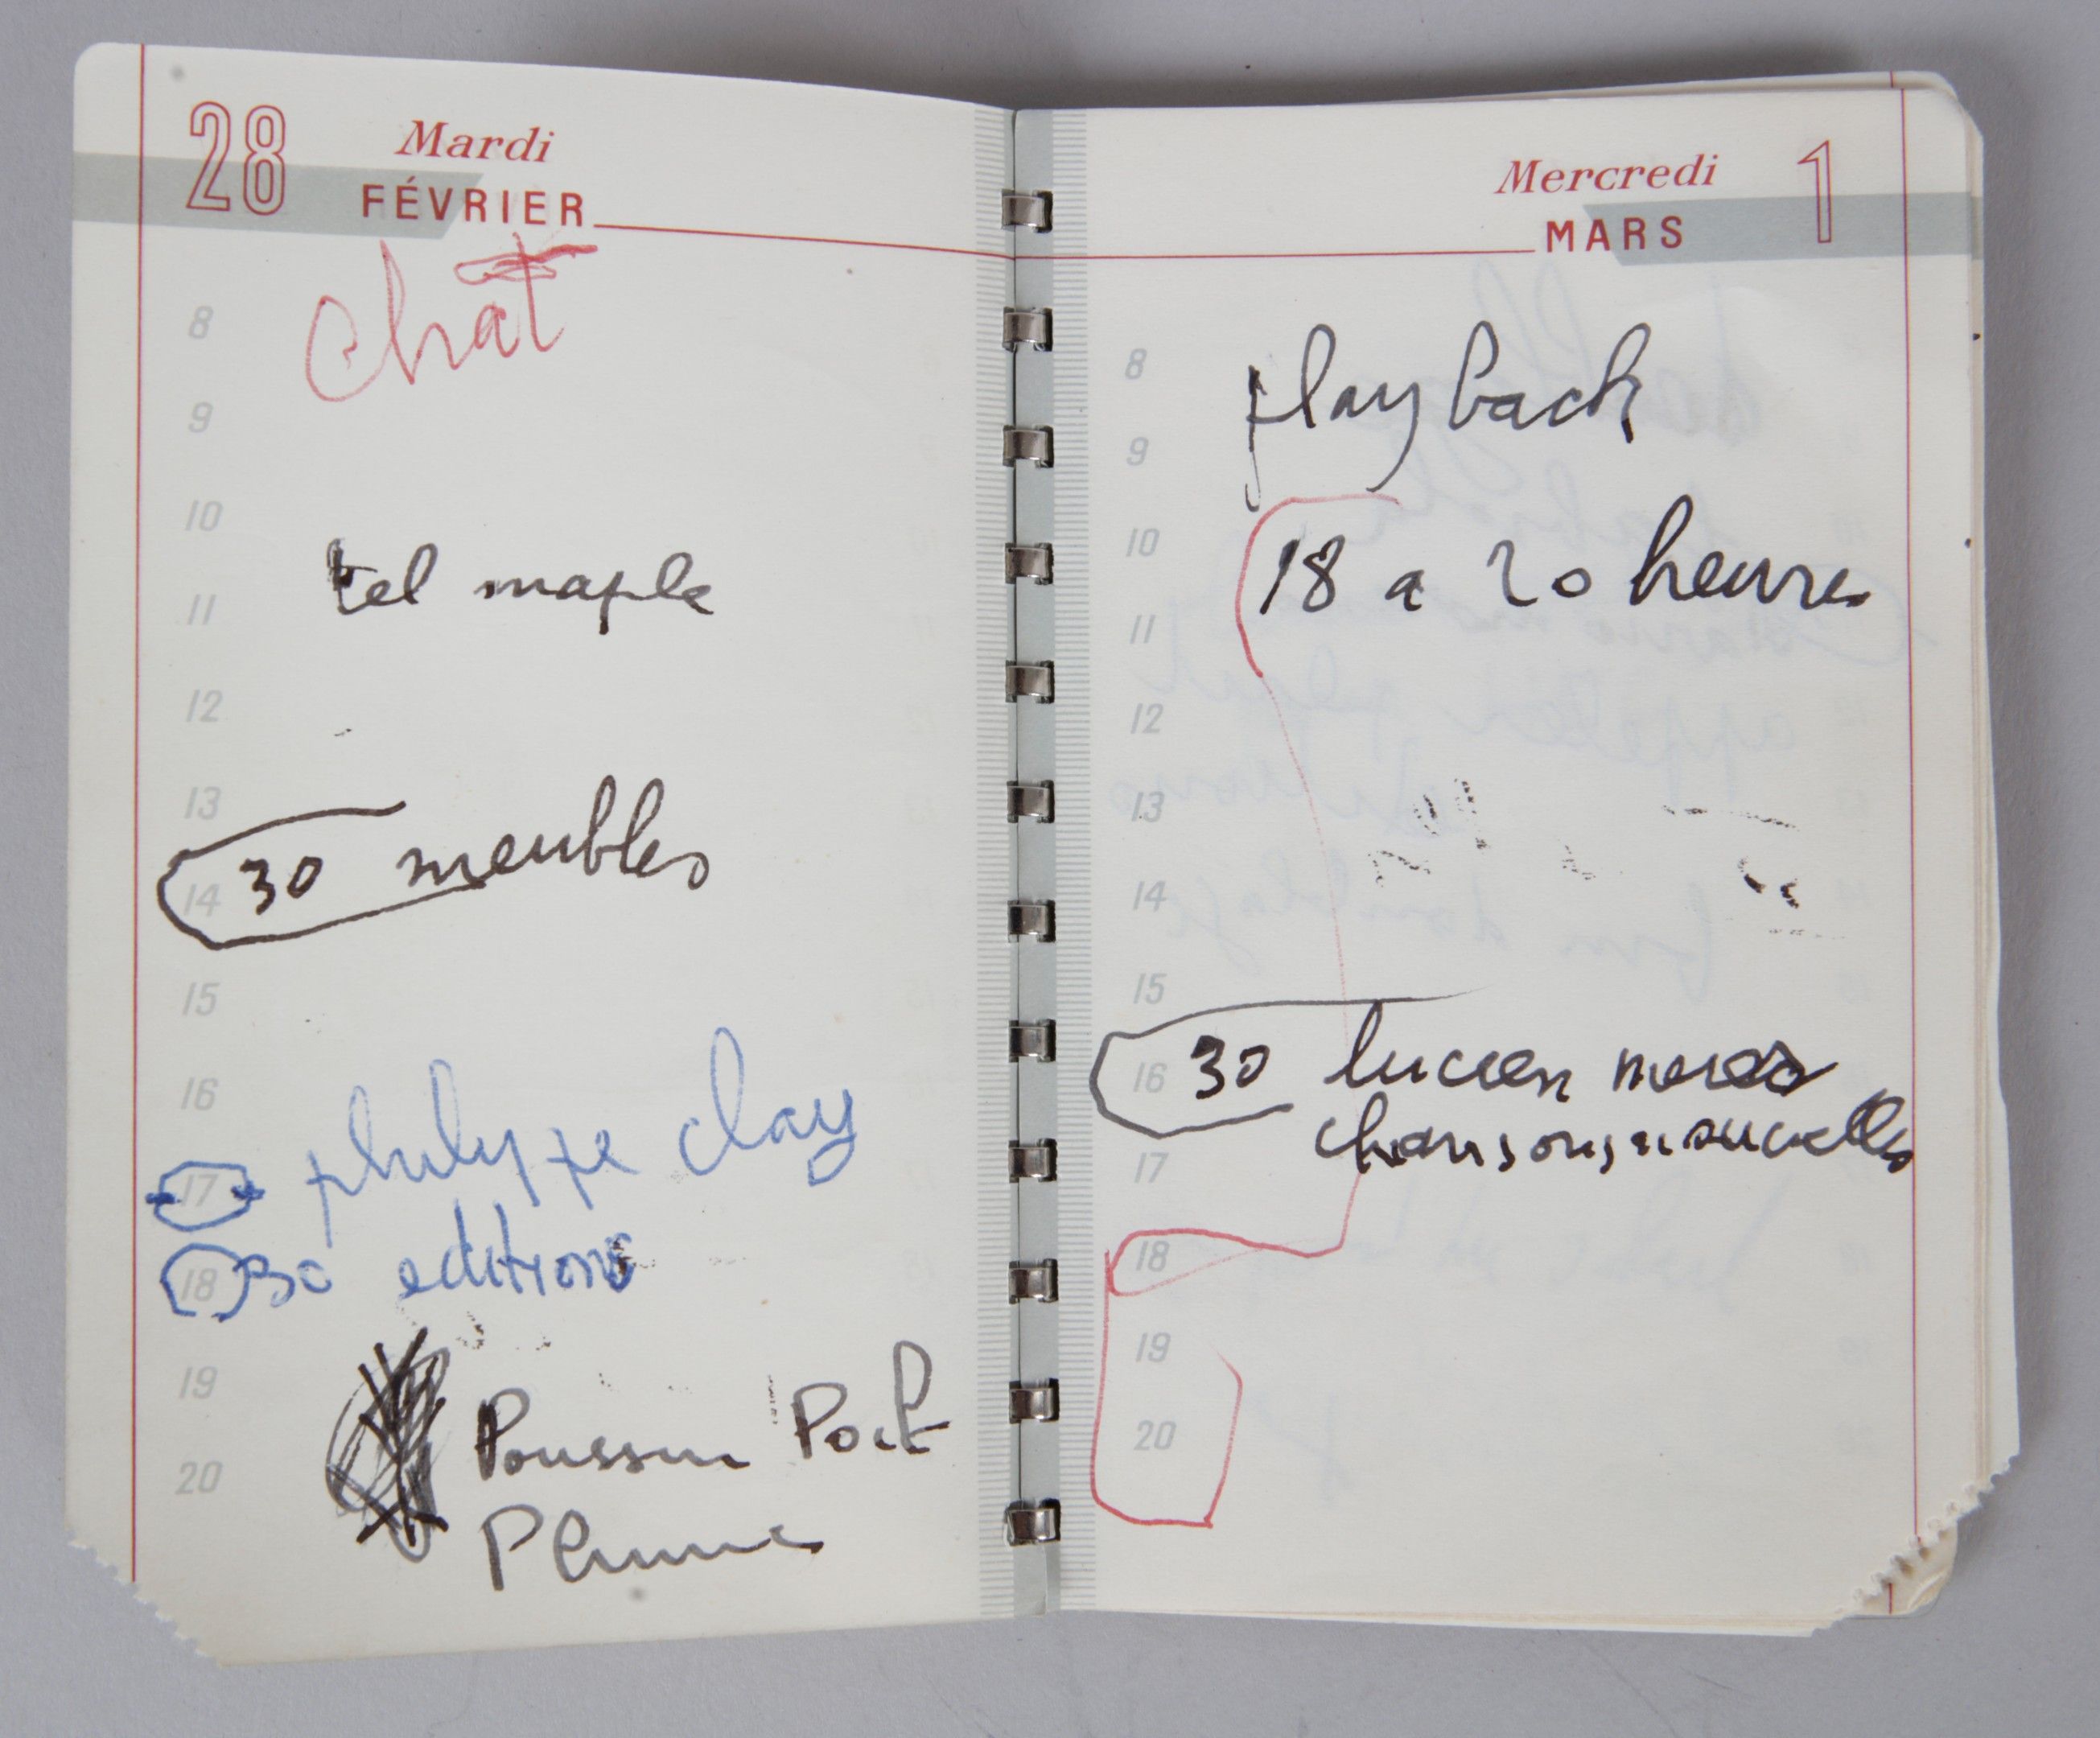 28 Mardi
FÉVRIER
chat
8
9
10
tel maple
11
12
13
14 30 meubles
15
16
philyppe clay
17
18 30 editions
19
Poussin Port
20
Plume
Mercredi 1
MARS
8 playback
9
10 18 a 20 heures
11
12
13
14
15
16 30 lucien
chansons nouvelles
17
18
19
20